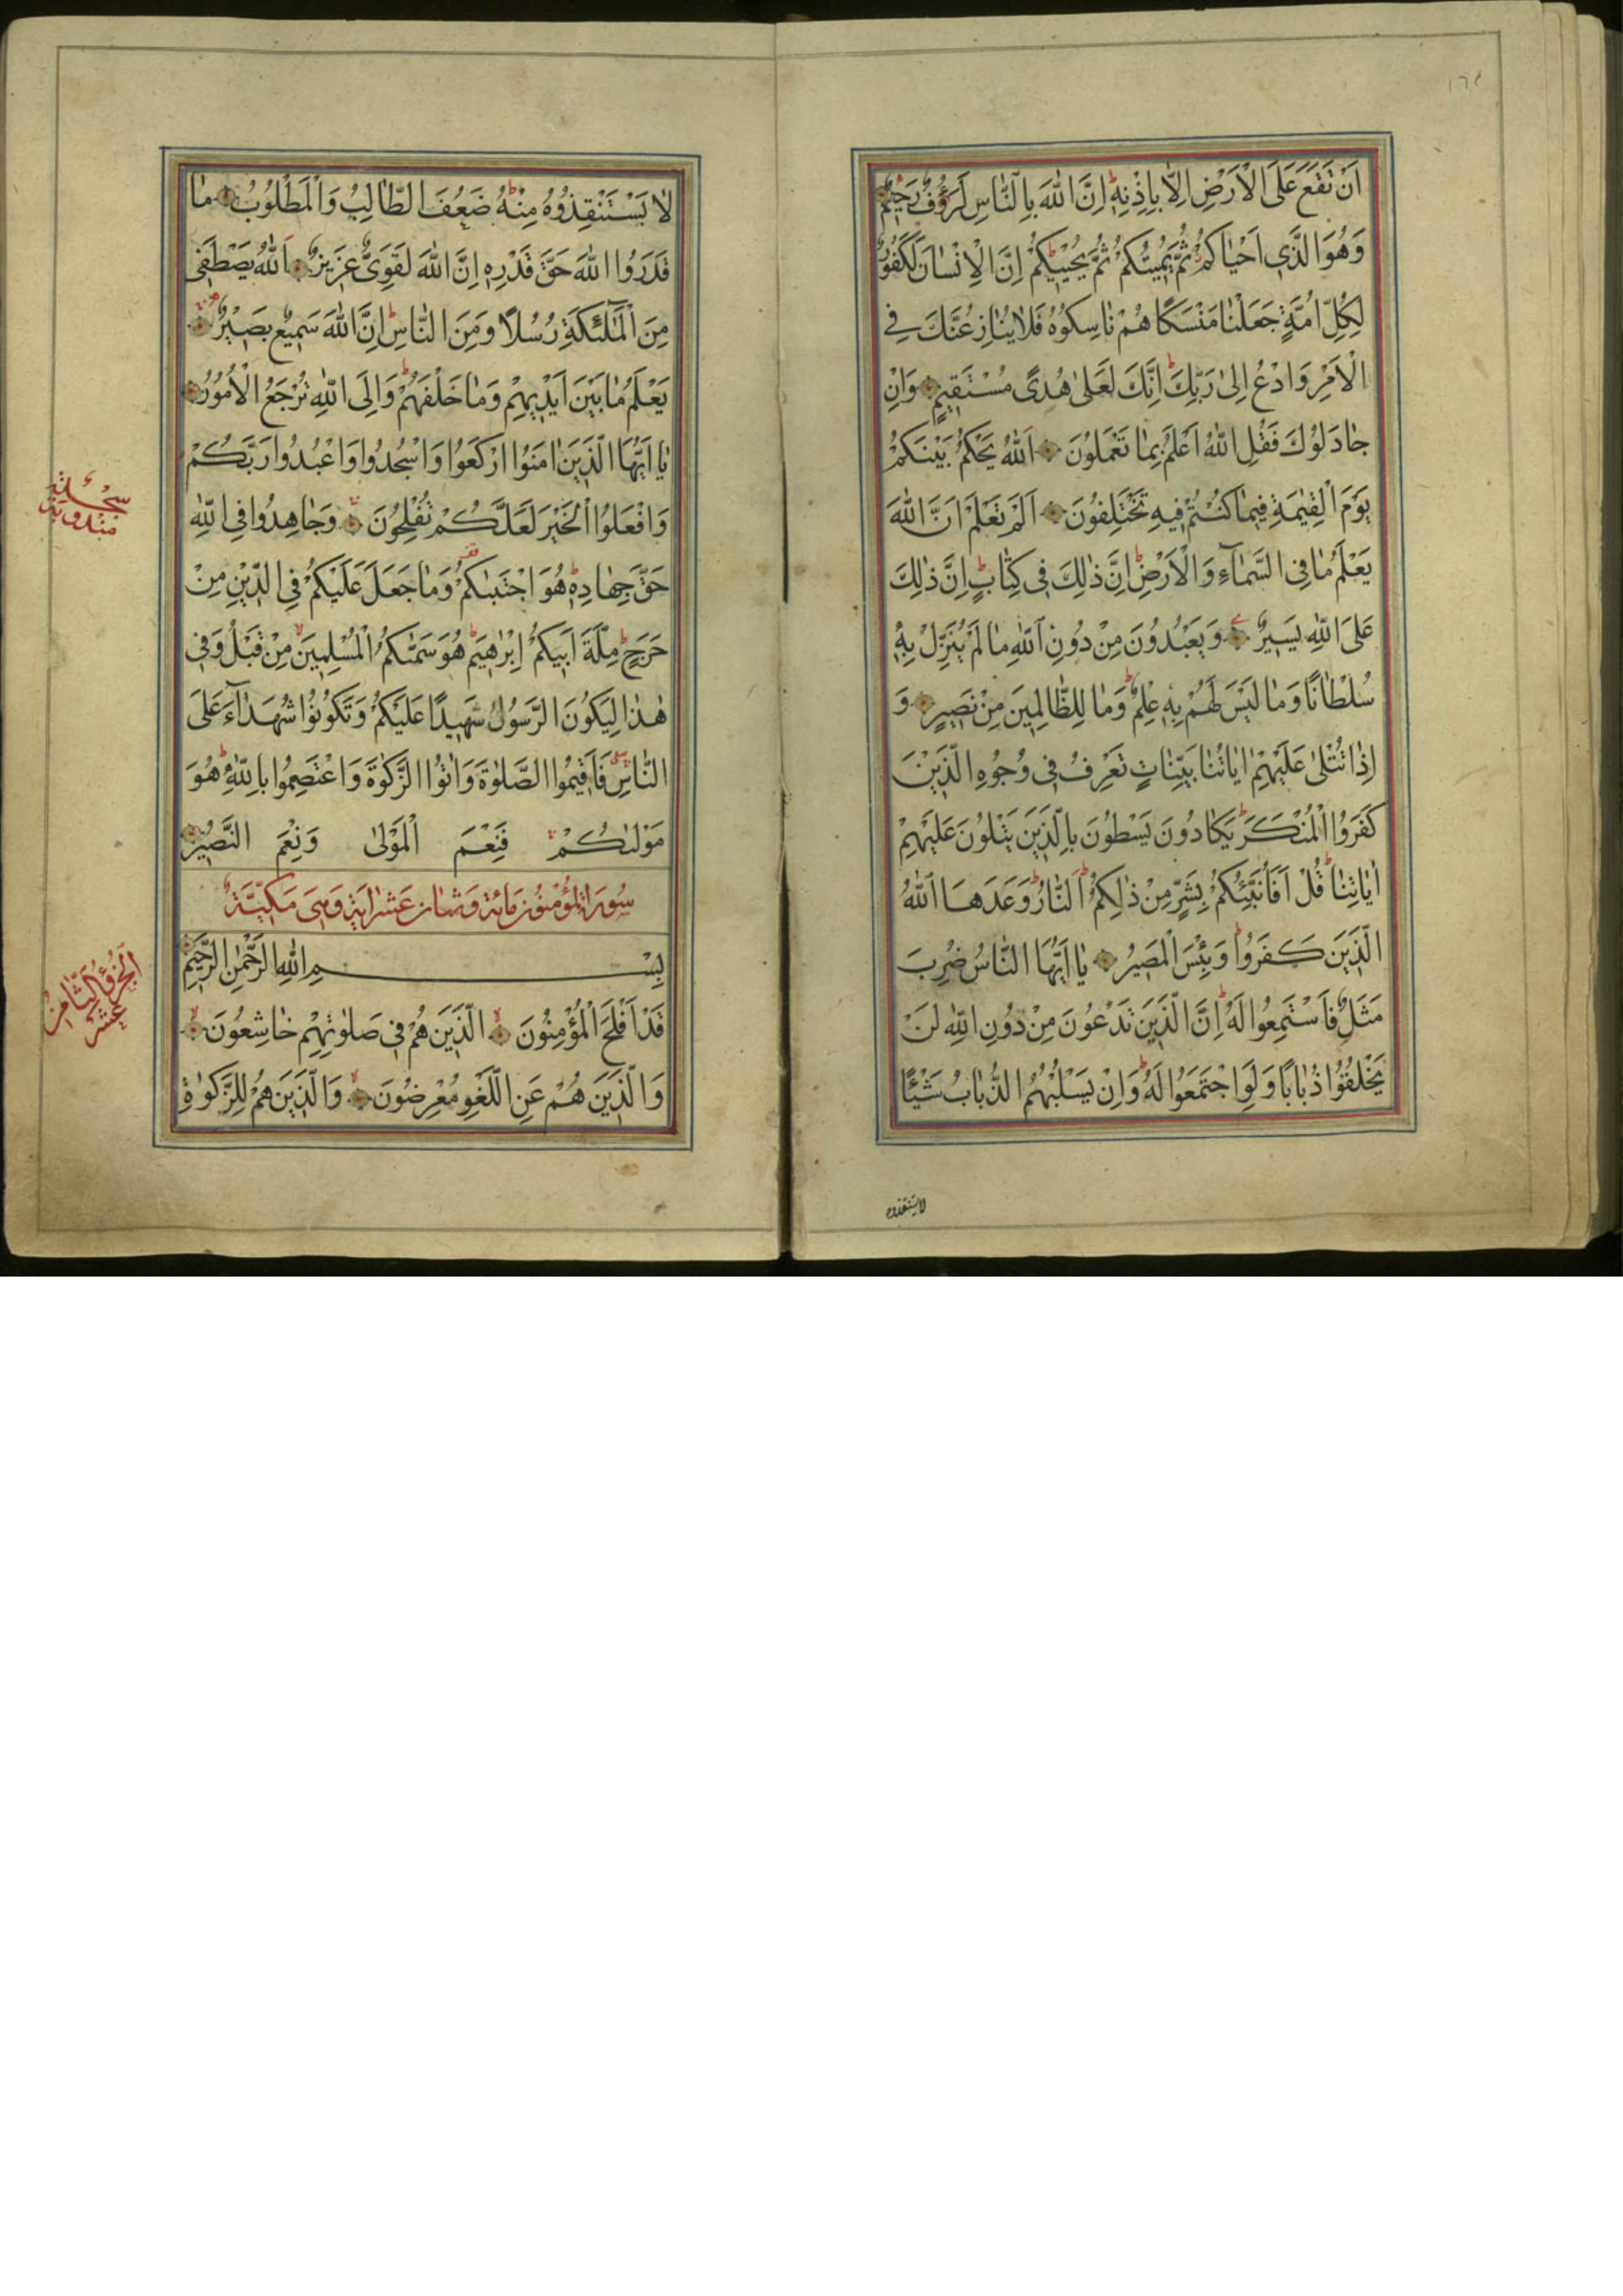 ١٦٤
اَنْ تَقَعَ عَلَى الْاَرْضِ اِلَّا بِاِذْنِهٖ اِنَّ اللّٰهَ بِالنَّاسِ لَرَؤُفٌ رَحِيمٌ
وَهُوَ الَّذِي اَحْيَاكُمْ ثُمَّ يُمِيتُكُمْ ثُمَّ يُحْيِيكُمْ اِنَّ الْاِنْسَانَ لَكَفُورٌ
لِكُلِّ اُمَّةٍ جَعَلْنَا مَنْسَكًا هُمْ نَاسِكُوهُ فَلَا يُنَازِعُنَّكَ فِي
الْاَمْرِ وَادْعُ اِلٰى رَبِّكَ اِنَّكَ لَعَلٰى هُدًى مُسْتَقِيمٍ وَاِنْ
جَادَلُوكَ فَقُلِ اللّٰهُ اَعْلَمُ بِمَا تَعْمَلُونَ اَللّٰهُ يَحْكُمُ بَيْنَكُمْ
يَوْمَ الْقِيٰمَةِ فِيمَا كُنْتُمْ فِيهِ تَخْتَلِفُونَ اَلَمْ تَعْلَمْ اَنَّ اللّٰهَ
يَعْلَمُ مَا فِي السَّمَاءِ وَالْاَرْضِ اِنَّ ذٰلِكَ فِي كِتَابٍ اِنَّ ذٰلِكَ
عَلَى اللّٰهِ يَسِيرٌ وَيَعْبُدُونَ مِنْ دُونِ اللّٰهِ مَا لَمْ يُنَزِّلْ بِهٖ
سُلْطَانًا وَمَا لَيْسَ لَهُمْ بِهٖ عِلْمٌ وَمَا لِلظَّالِمِينَ مِنْ نَصِيرٍ وَ
اِذَا تُتْلٰى عَلَيْهِمْ اٰيَاتُنَا بَيِّنَاتٍ تَعْرِفُ فِي وُجُوهِ الَّذِينَ
كَفَرُوا الْمُنْكَرَ يَكَادُونَ يَسْطُونَ بِالَّذِينَ يَتْلُونَ عَلَيْهِمْ
اٰيَاتِنَا قُلْ اَفَاُنَبِّئُكُمْ بِشَرٍّ مِنْ ذٰلِكُمْ اَلنَّارُ وَعَدَهَا اللّٰهُ
الَّذِينَ كَفَرُوا وَبِئْسَ الْمَصِيرُ يَا اَيُّهَا النَّاسُ ضُرِبَ
مَثَلٌ فَاسْتَمِعُوا لَهُ اِنَّ الَّذِينَ تَدْعُونَ مِنْ دُونِ اللّٰهِ لَنْ
يَخْلُقُوا ذُبَابًا وَلَوِ اجْتَمَعُوا لَهُ وَاِنْ يَسْلُبْهُمُ الذُّبَابُ شَيْئًا
لا يستنقذوه
لَا يَسْتَنْقِذُوهُ مِنْهُ ضَعُفَ الطَّالِبُ وَالْمَطْلُوبُ مَا
قَدَرُوا اللّٰهَ حَقَّ قَدْرِهٖ اِنَّ اللّٰهَ لَقَوِيٌّ عَزِيزٌ اَللّٰهُ يَصْطَفِي
مِنَ الْمَلٰئِكَةِ رُسُلًا وَمِنَ النَّاسِ اِنَّ اللّٰهَ سَمِيعٌ بَصِيرٌ
يَعْلَمُ مَا بَيْنَ اَيْدِيهِمْ وَمَا خَلْفَهُمْ وَاِلَى اللّٰهِ تُرْجَعُ الْاُمُورُ
يَا اَيُّهَا الَّذِينَ اٰمَنُوا ارْكَعُوا وَاسْجُدُوا وَاعْبُدُوا رَبَّكُمْ
وَافْعَلُوا الْخَيْرَ لَعَلَّكُمْ تُفْلِحُونَ وَجَاهِدُوا فِي اللّٰهِ
حَقَّ جِهَادِهٖ هُوَ اجْتَبٰيكُمْ وَمَا جَعَلَ عَلَيْكُمْ فِي الدِّينِ مِنْ
حَرَجٍ مِلَّةَ اَبِيكُمْ اِبْرٰهِيمَ هُوَ سَمّٰيكُمُ الْمُسْلِمِينَ مِنْ قَبْلُ وَفِي
هٰذَا لِيَكُونَ الرَّسُولُ شَهِيدًا عَلَيْكُمْ وَتَكُونُوا شُهَدَاءَ عَلَى
النَّاسِ فَاَقِيمُوا الصَّلٰوةَ وَاٰتُوا الزَّكٰوةَ وَاعْتَصِمُوا بِاللّٰهِ هُوَ
مَوْلٰيكُمْ فَنِعْمَ الْمَوْلٰى وَنِعْمَ النَّصِيرُ
سُورَةُ الْمُؤْمِنُونَ مِائَة وَثَمَان عَشَرَ اٰيَة وَهِيَ مَكِّيَّةٌ
بِسْمِ اللّٰهِ الرَّحْمٰنِ الرَّحِيمِ
قَدْ اَفْلَحَ الْمُؤْمِنُونَ الَّذِينَ هُمْ فِي صَلٰوتِهِمْ خَاشِعُونَ
وَالَّذِينَ هُمْ عَنِ اللَّغْوِ مُعْرِضُونَ وَالَّذِينَ هُمْ لِلزَّكٰوةِ
سجدة
مندوبة
الجزؤ الثامن
عشر